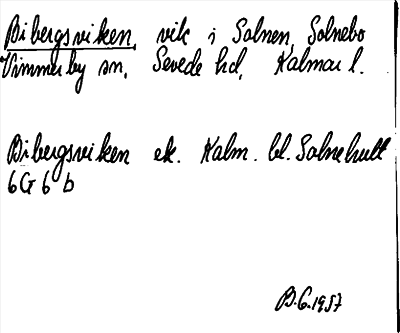 Bibergsviken, vik i Solnen, Solnebo
Vimmerby sn, Sevede hd, Kalmar l.
Bibergsviken ek. Kalm. bl. Solnehult
6G 6 b
B.G.1957